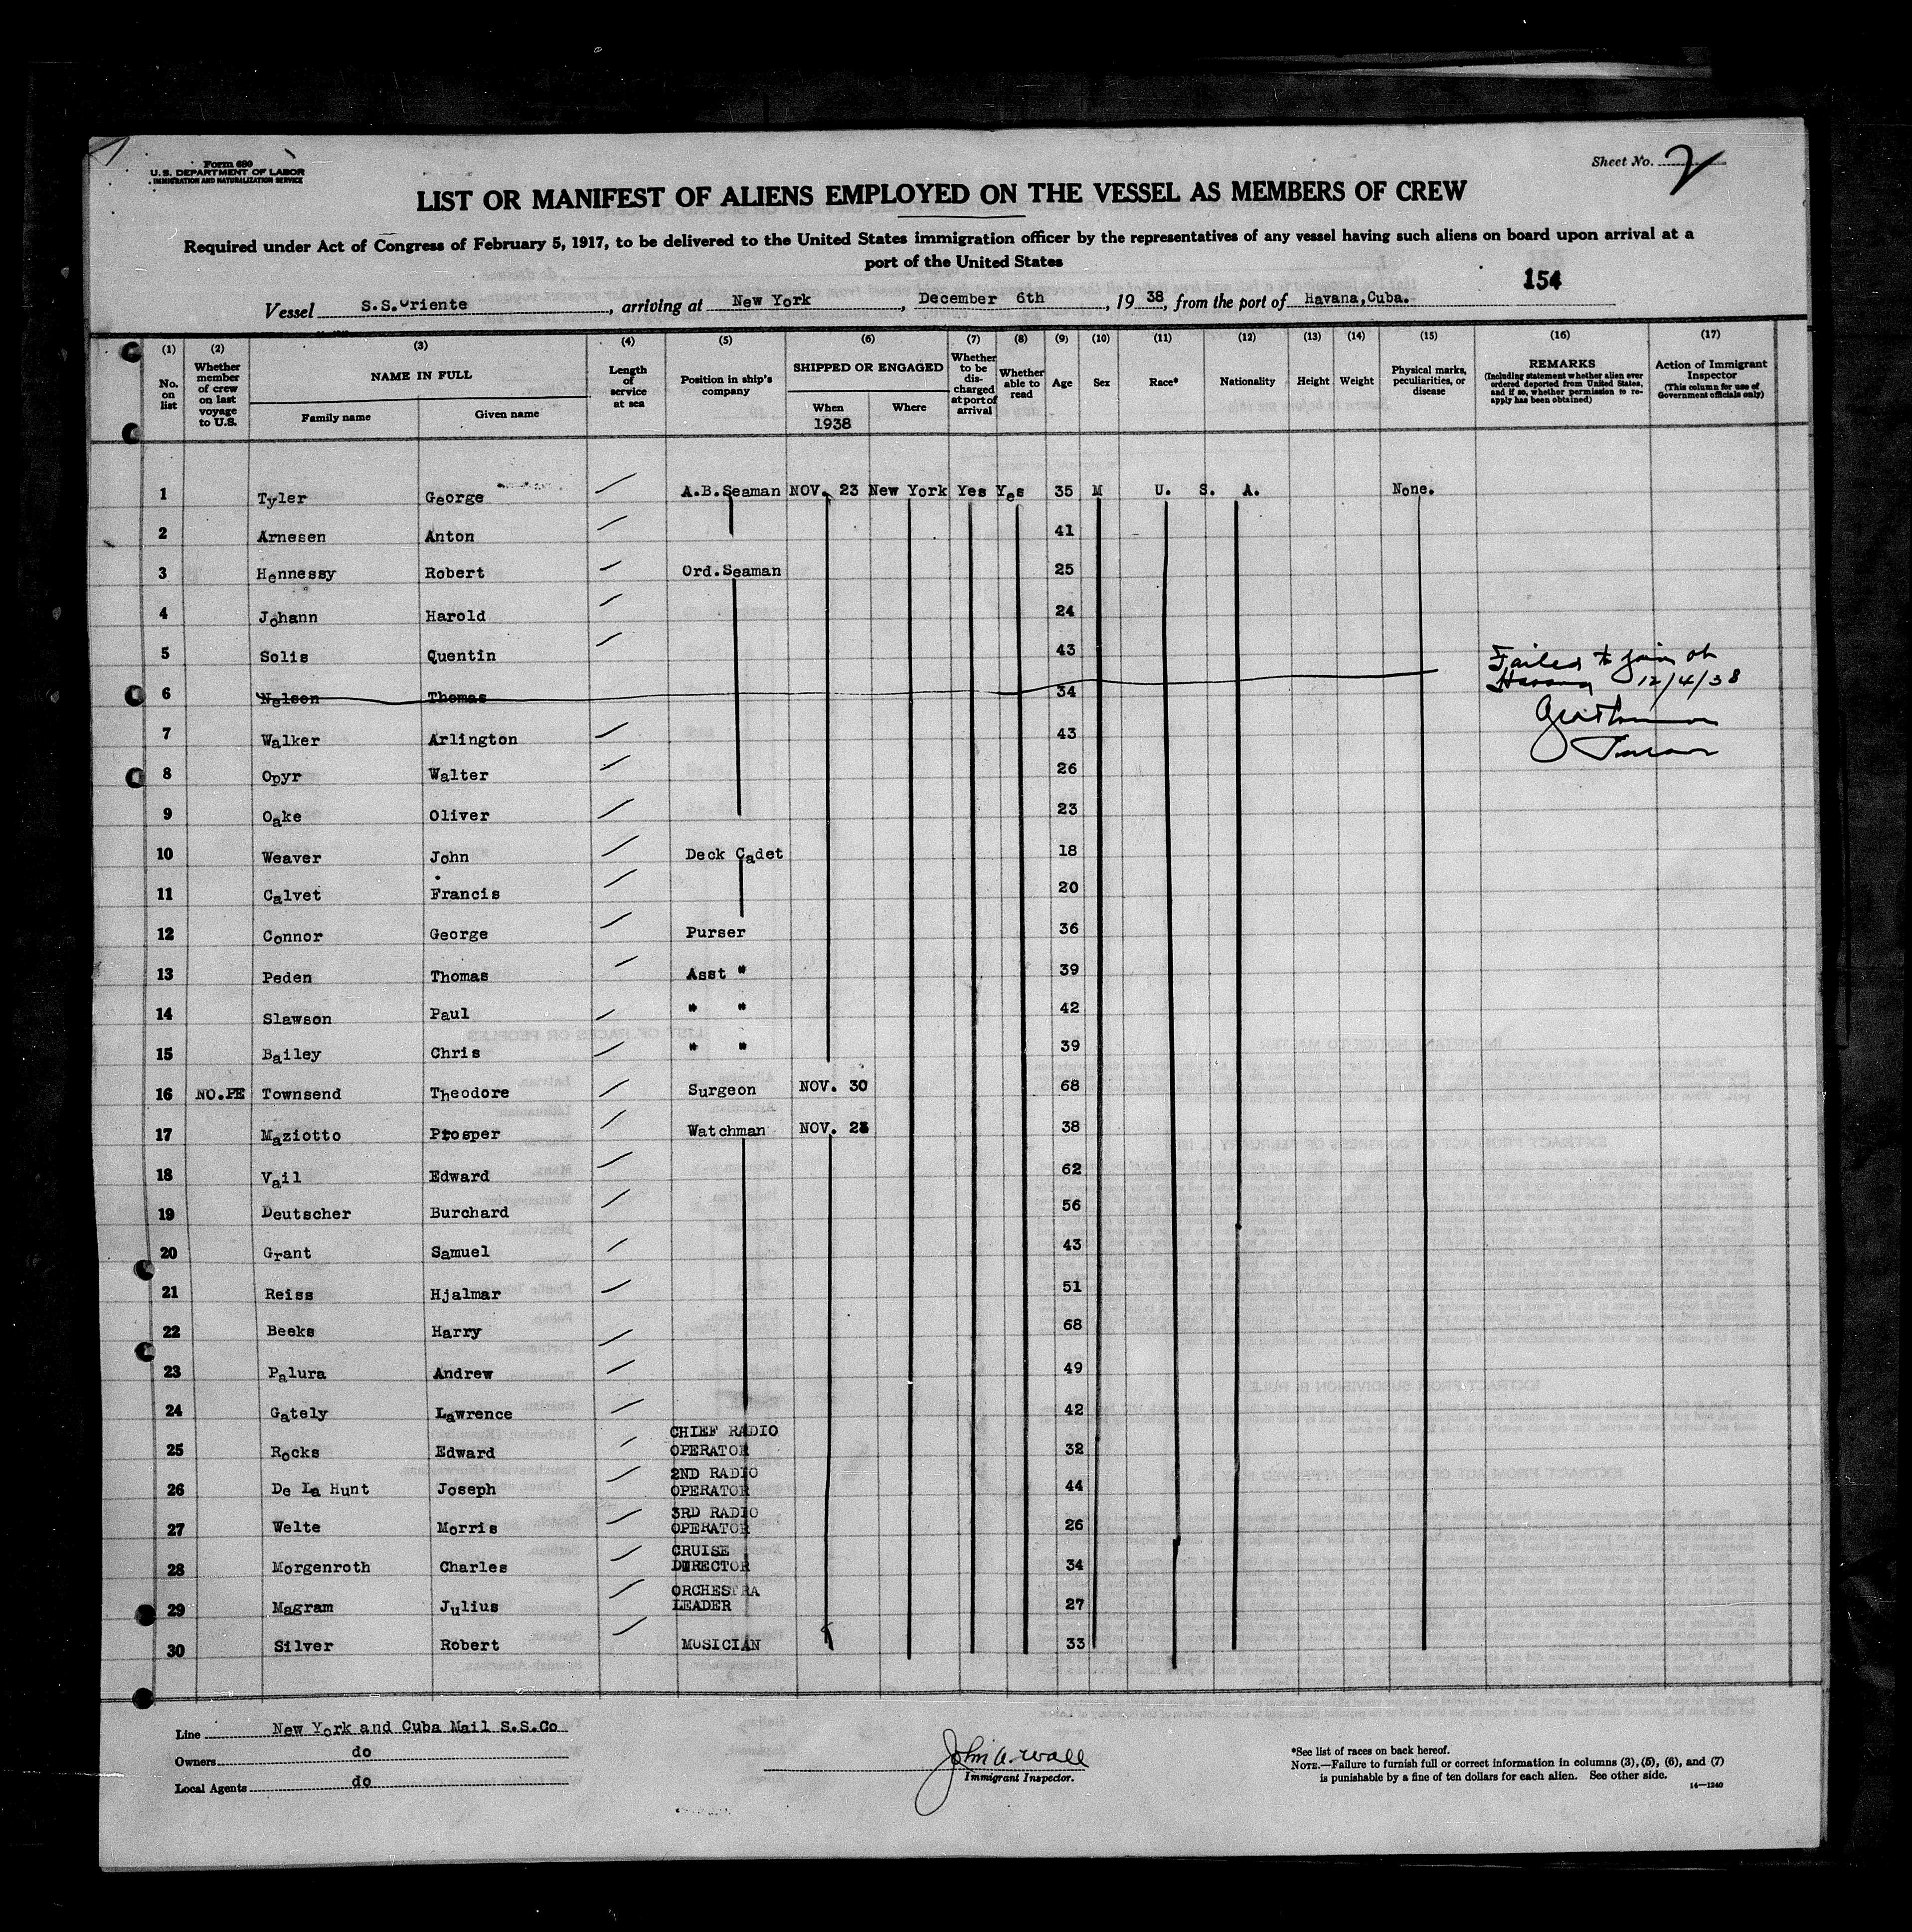 Form 680
U.S. DEPARTMENT OF LABOR
IMMIGRATION AND NATURALIZATION SERVICE
Sheet No. 2
LIST OR MANIFEST OF ALIENS EMPLOYED ON THE VESSEL AS MEMBERS OF CREW
Required under Act of Congress of February 5, 1917, to be delivered to the United States immigration officer by the representatives of any vessel having such aliens on board upon arrival at a
port of the United States
154
Vessel S.S.Oriente, arriving at New York, December 6th, 1938, from the port of Havana,Cuba.
(1) (2) (3) (4) (5) (6) (7) (8) (9) (10) (11) (12) (13) (14) (15) (16) (17)
No. on list
Whether member of crew on last voyage to U.S.
NAME IN FULL
Family name Given name
Length of service at sea
Position in ship's company
SHIPPED OR ENGAGED
When Where
1938
Whether to be discharged at port of arrival
Whether able to read
Age
Sex
Race*
Nationality
Height
Weight
Physical marks, peculiarities, or disease
REMARKS
(Including statement whether alien ever ordered deported from United States, and if so, whether permission to reapply has been obtained)
Action of Immigrant Inspector
(This column for use of Government officials only)
1 Tyler George A.B.Seaman NOV. 23 New York Yes Yes 35 M U. S. A. None.
2 Arnesen Anton 41
3 Hennessy Robert Ord.Seaman 25
4 Johann Harold 24
5 Solis Quentin 43
6 Nelson Thomas 34 Failed to join at Havana 12/4/38
7 Walker Arlington 43
8 Opyr Walter 26
9 Oake Oliver 23
10 Weaver John Deck Cadet 18
11 Calvet Francis 20
12 Connor George Purser 36
13 Peden Thomas Asst " 39
14 Slawson Paul " " 42
15 Bailey Chris " " 39
16 NO.PE Townsend Theodore Surgeon NOV. 30 68
17 Maziotto Prosper Watchman NOV. 23 38
18 Vail Edward 62
19 Deutscher Burchard 56
20 Grant Samuel 43
21 Reiss Hjalmar 51
22 Beeks Harry 68
23 Palura Andrew 49
24 Gately Lawrence 42
25 Rocks Edward CHIEF RADIO OPERATOR 32
26 De La Hunt Joseph 2ND RADIO OPERATOR 44
27 Welte Morris 3RD RADIO OPERATOR 26
28 Morgenroth Charles CRUISE DIRECTOR 34
29 Magram Julius ORCHESTRA LEADER 27
30 Silver Robert MUSICIAN 33
Line New York and Cuba Mail S.S.Co
Owners do
Local Agents do
John A. Wall
Immigrant Inspector.
*See list of races on back hereof.
NOTE.—Failure to furnish full or correct information in columns (3), (5), (6), and (7)
is punishable by a fine of ten dollars for each alien. See other side.
14—1240